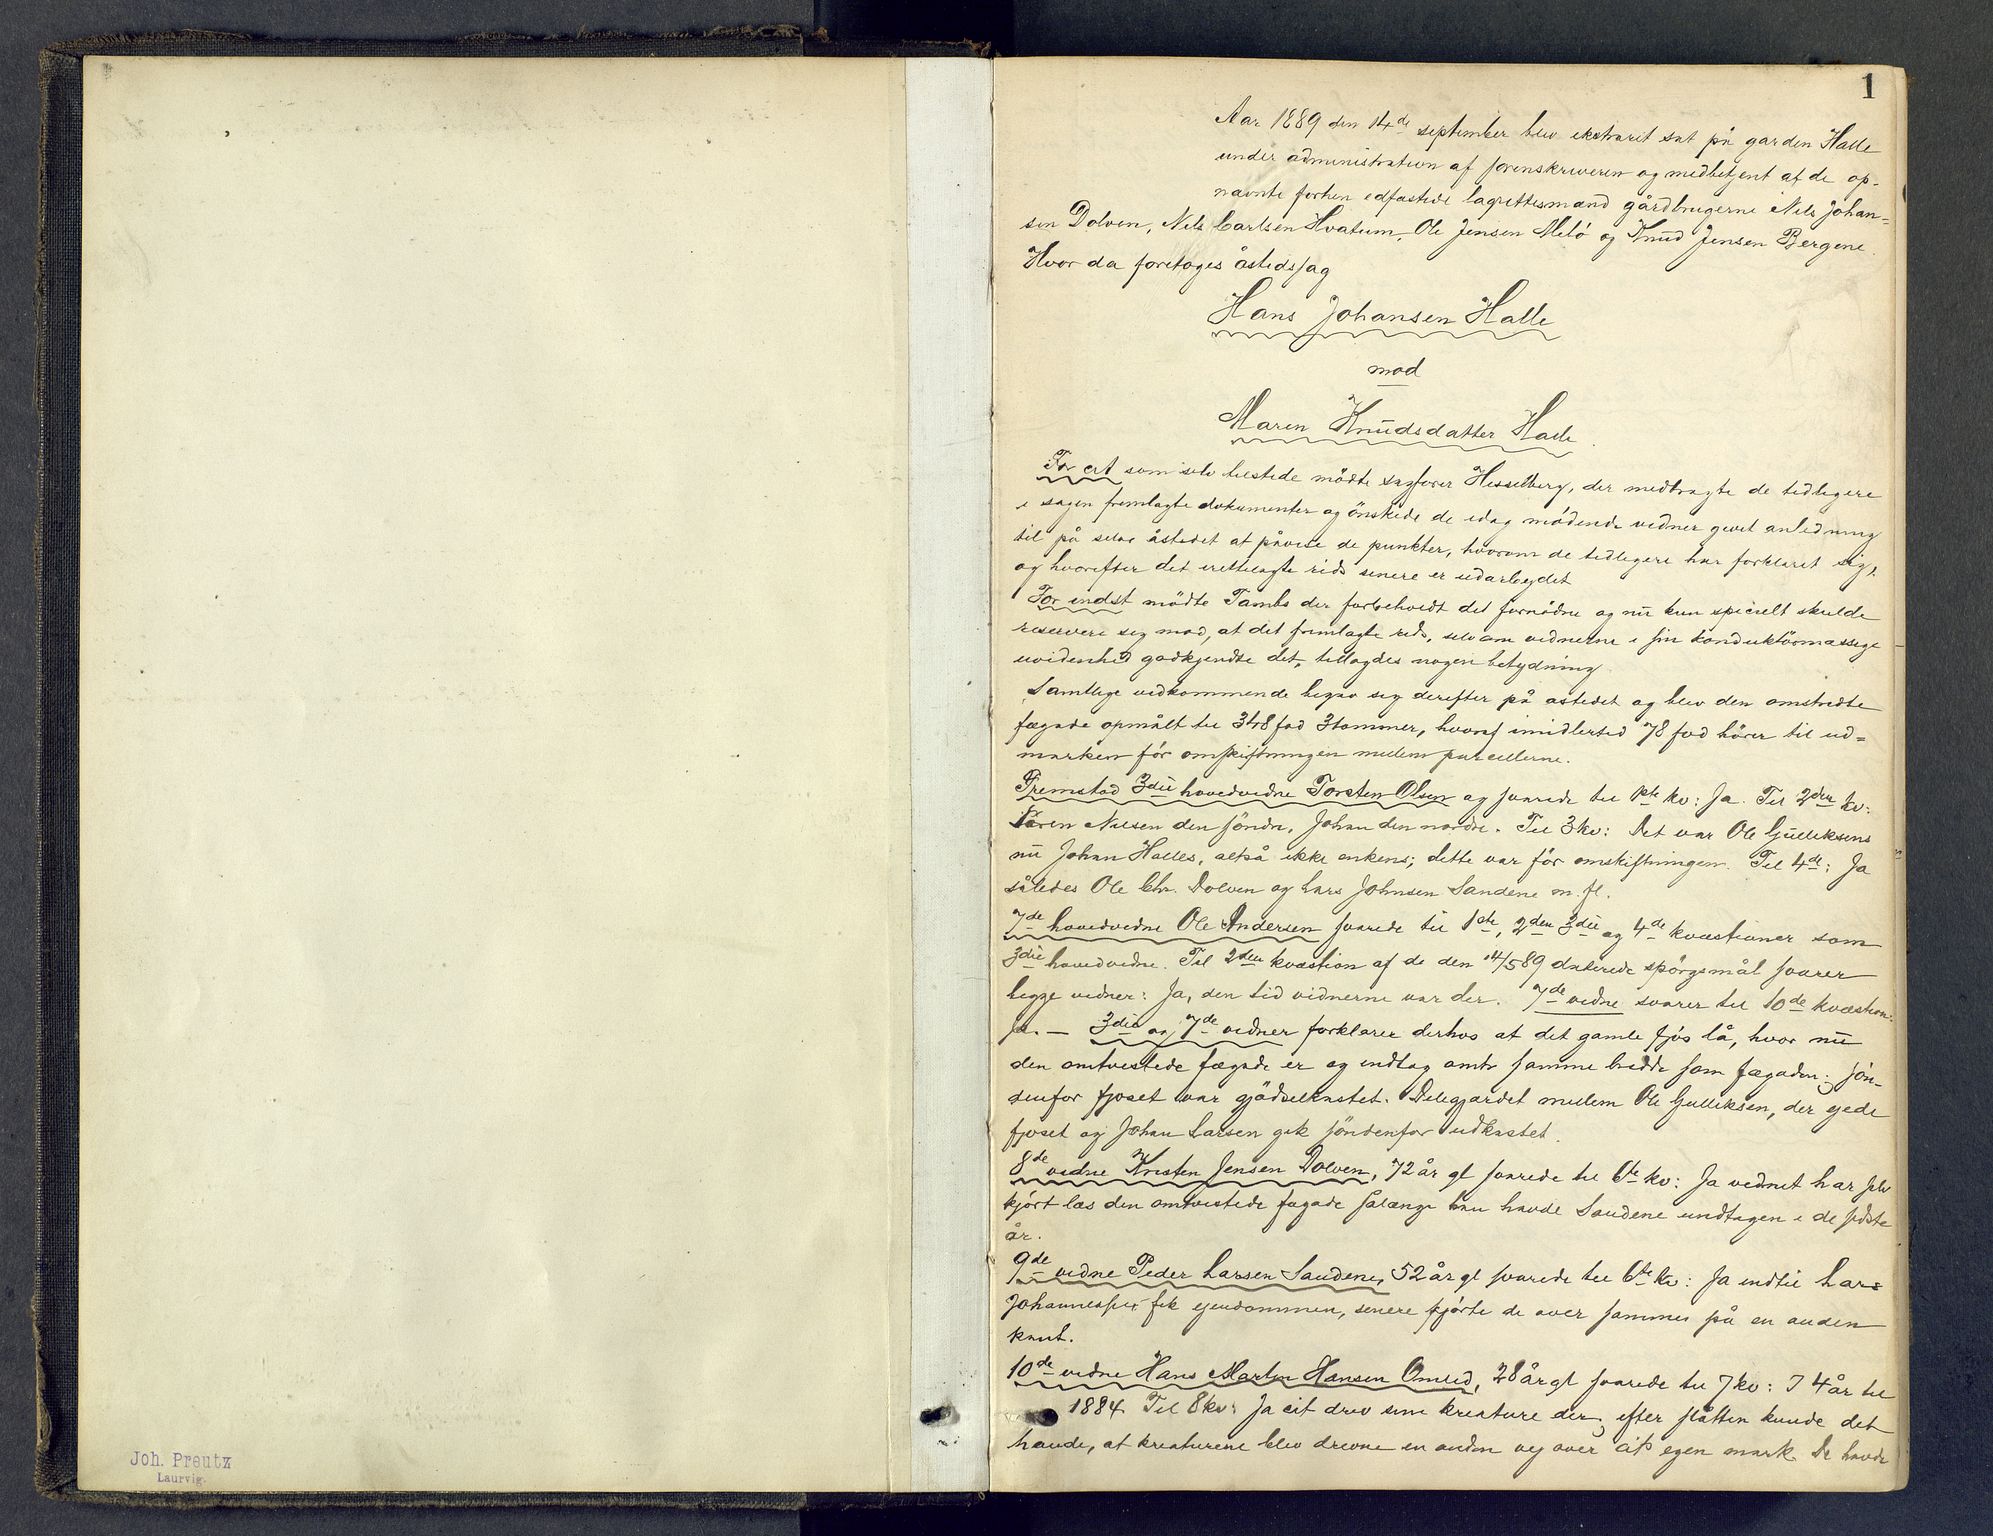 1
Aar 1889 den 14de september blev ekstraret sat på garden Halle
under administration af sorenskriveren og medbetjent af de op-
nævnte forhen edfæstede lagrettesmænd gårdbrugerne Nils Johan-
sen Dolven, Nils Carlsen Hvatum, Ole Jensen Melö og Knud Jensen Bergene.
Hvor da foretoges åstedssag
Hans Johansen Halle
mod
Maren Knudsdatter Halle.
For cit som selv tilstede mödte sagförer Hesselberg, der medbragte de tidligere
i sagen fremlagte dokumenter og önskede de idag mödende vidner givet anledning
til på selve åstedet at påvise de punkter, hvorom de tidligere har forklaret sig,
og hvorefter det irettelagte rids senere er udarbeydet
For indst mödte Tambs der forbeholdt det fornödne og nu kun specielt skulde
reservere sig mod, at det fremlagte rids, selv om vidnerne i sin konduktörmæssige
uvidenhed godkjendte det, tillagdes nogen betydning.
Samtlige vedkommende begav sig derefter på åstedet og blev den omstridte
fægade opmålt til 348 fod 3 tommer, hvoraf imidlertid 78 fod hörer til ud-
marken för omskiftningen mellem parcellerne.
Fremstod 3die hovedvidne Torsten Olsen og svarede til 1ste kv: Ja. Til 2den kv:
Sören Nilsen den söndre, Johan den nordre. Til 3 kv: Det var Ole Gulliksens
nu Johan Halles, altså ikke enkens; dette var för omskiftningen. Til 4de: Ja
således Ole Chr. Dolven og Lars Johnsen Sandene m. fl.
7de hovedvidne Ole Andersen svarede til 1ste, 2den 3die og 4de kvæstioner som
3die hovedvidne. Til 2den kvæstion af de den 14/5 89 daterede spörgsmål svarer
begge vidner: Ja, den tid vidnerne var der. 7de vidne svarer til 10de kvæstion:
Ja. — 3die og 7de vidner forklarer derhos at det gamle fjös lå, hvor nu
den omtvistede fægade er og indtog omtr samme bredde som fægaden; sön-
denfor fjöset var gjödselkastet. Delegjærdet mellem Ole Gulliksen, der eiede
fjöset og Johan Larsen gik söndenfor udkastet.
8de vidne Kristen Jensen Dolven, 72 år gl svarede til 6te kv: Ja vidnet har selv
kjört læs den omtvistede fægade sålænge han havde Sandene undtagen i de sidste
år.
9de vidne Peder Larsen Sandene, 52 år gl svarede til 6te kv: Ja indtil Lars
Johannessen fik eiendommen, senere kjörte de over sammes på en anden
kant.
10de vidne Hans Martin Hansen Omlid, 28 år gl svarede til 7 kv: I 4 år til
1884. Til 8 kv: Ja cit drev sine kreature der, efter slåtten kunde det
hænde, at kreaturene blev drevne en anden vej over cits egen mark. De havde
Joh. Preutz
Laurvig.